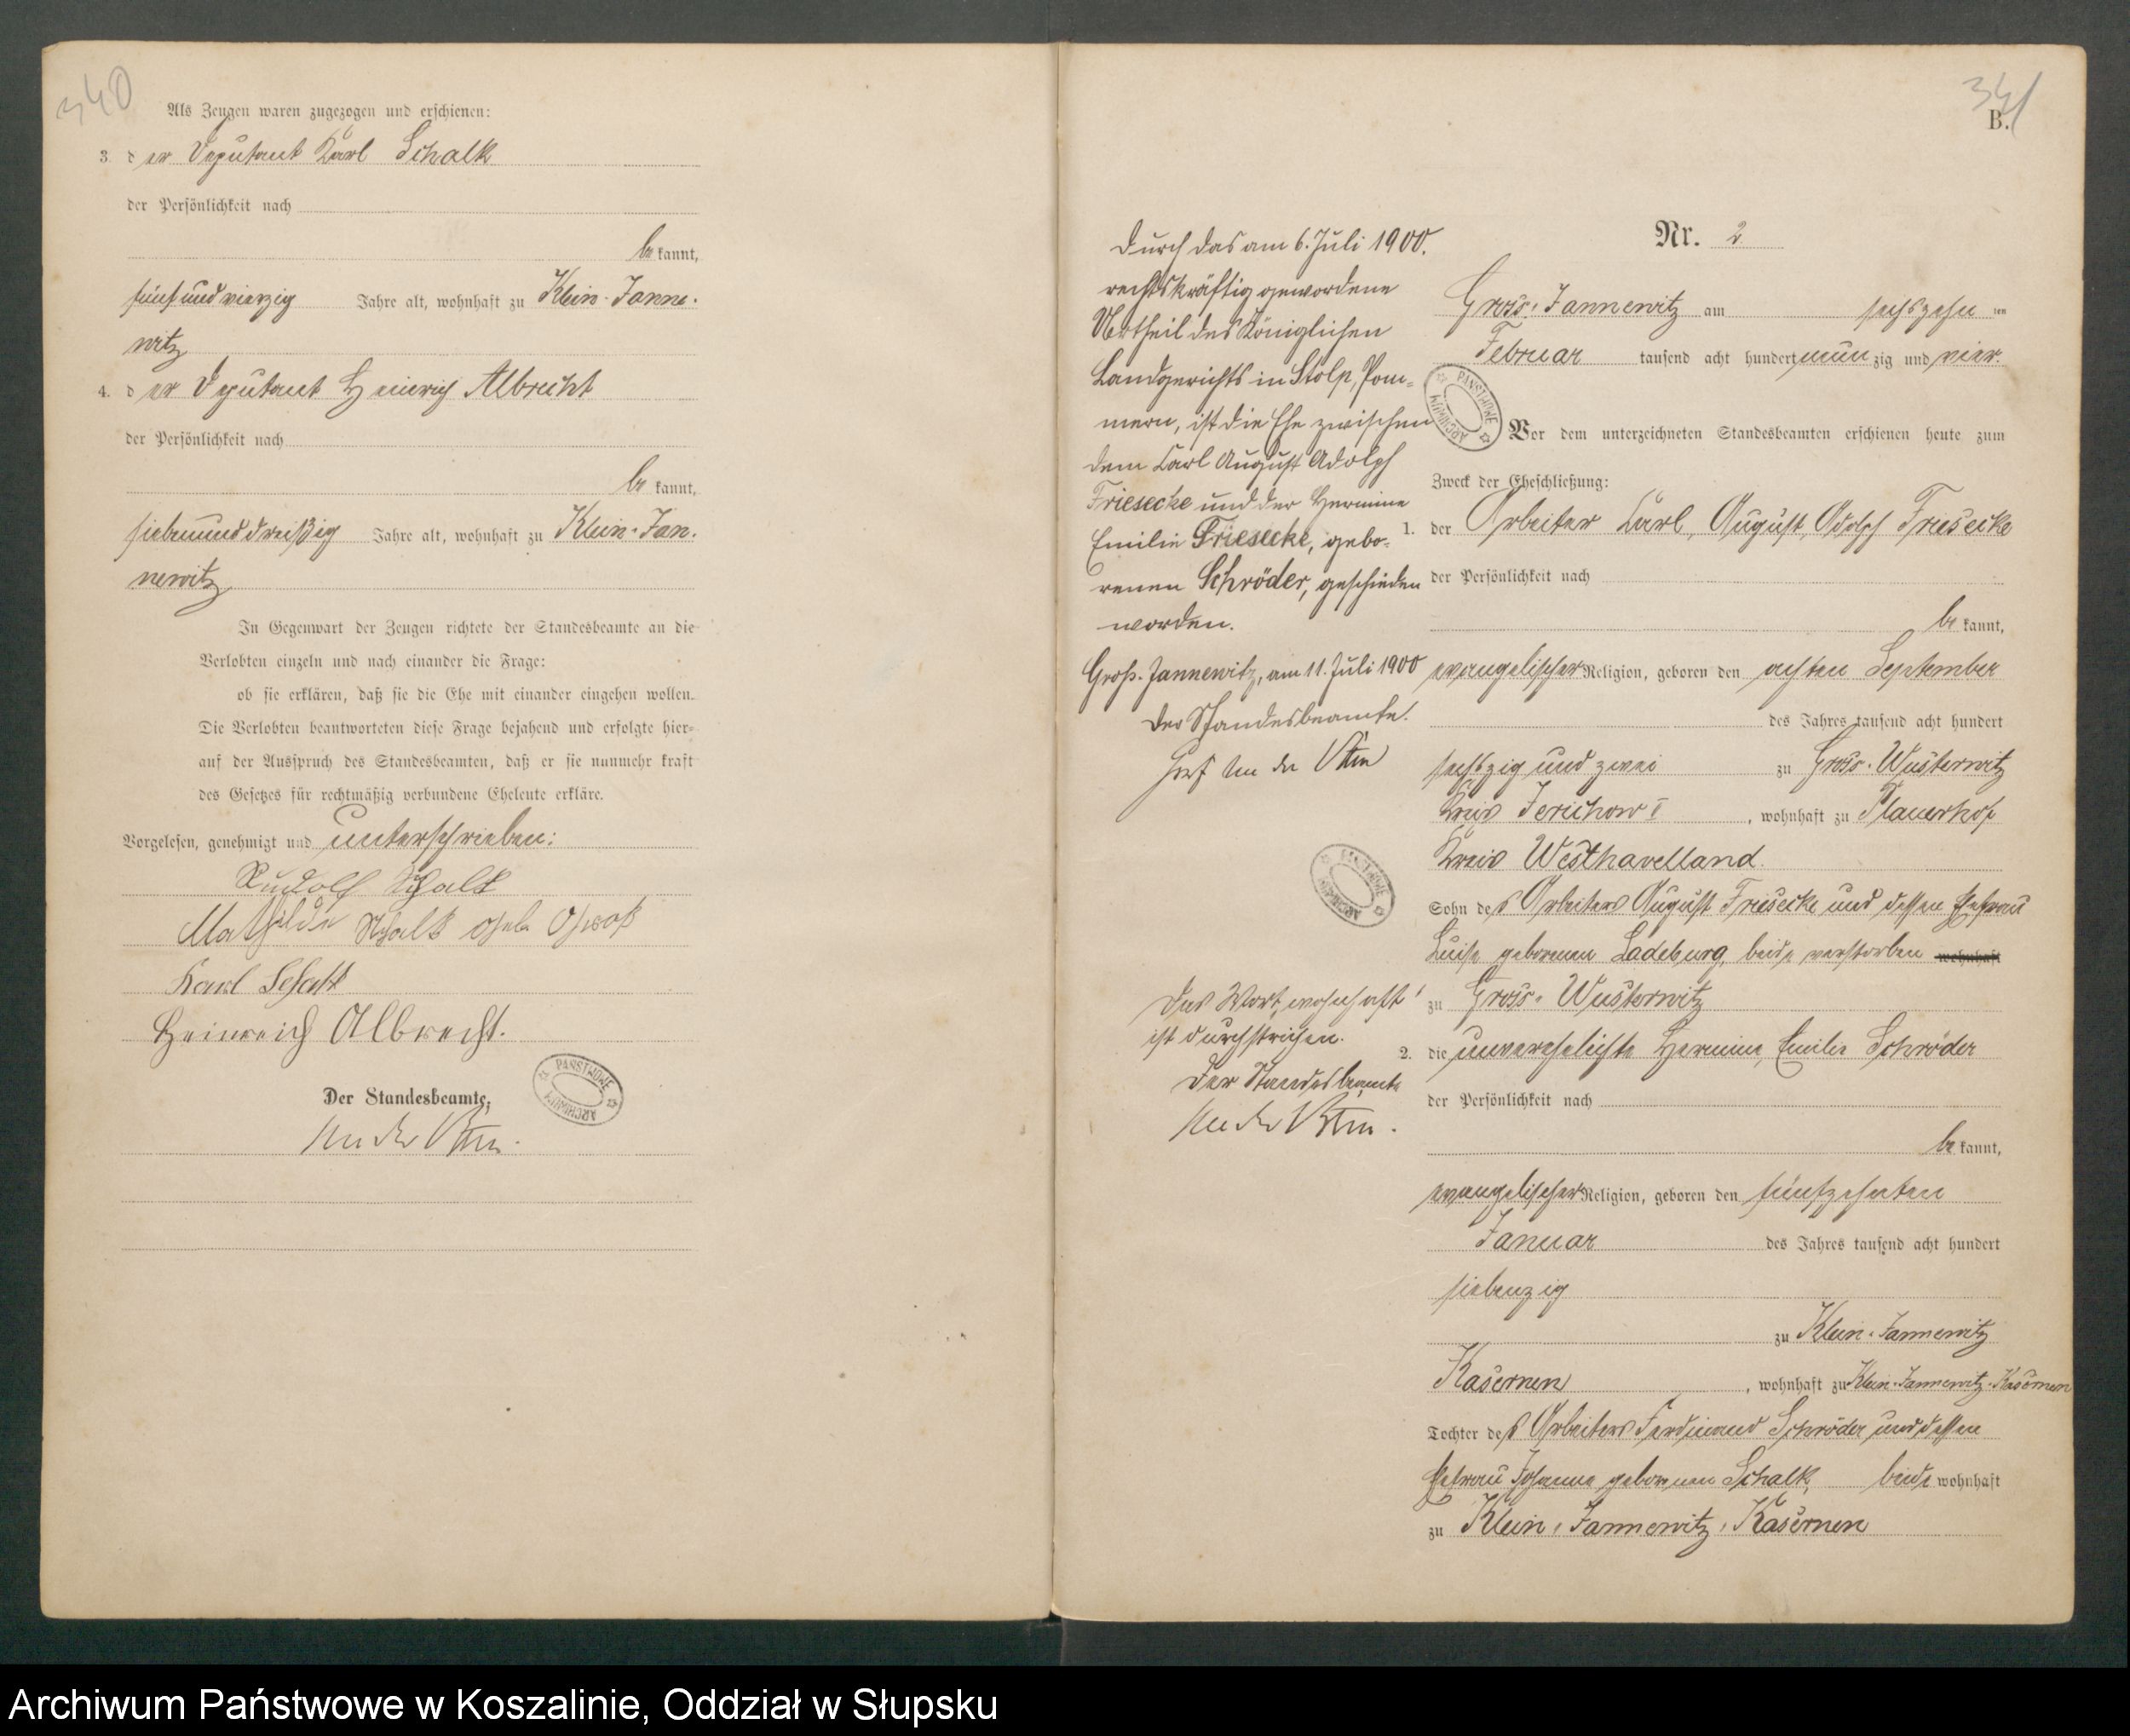 340
Als Zeugen waren zugezogen und erschienen:
3. der Deputant Karl Schalk
der Persönlichkeit nach
bekannt,
fünfundvierzig Jahre alt, wohnhaft zu Klein-Janne-
witz
4. der Deputant Heinrich Albrecht
der Persönlichkeit nach
bekannt,
siebenunddreißig Jahre alt, wohnhaft zu Klein-Jan-
newitz
In Gegenwart der Zeugen richtete der Standesbeamte an die
Verlobten einzeln und nach einander die Frage:
ob sie erklären, daß sie die Ehe mit einander eingehen wollen.
Die Verlobten beantworteten diese Frage bejahend und erfolgte hier-
auf der Ausspruch des Standesbeamten, daß er sie nunmehr kraft
des Gesetzes für rechtmäßig verbundene Eheleute erkläre.
Vorgelesen, genehmigt und unterschrieben:
Rudolf Schalk
Mathilde Schalk geb.
Karl Schalk
Heinreich Albrecht.
Der Standesbeamte,
PAŃSTWOWE ARCHIWUM
341
B.
Nr. 2
Gross-Jannewitz am sechszehnten
Februar tausend acht hundert neunzig und vier.
PAŃSTWOWE ARCHIWUM
Vor dem unterzeichneten Standesbeamten erschienen heute zum
Zweck der Eheschließung:
1. der Arbeiter Carl, August, Adolph Friesecke
der Persönlichkeit nach
bekannt,
evangelischer Religion, geboren den achten September
des Jahres tausend acht hundert
sechszig und zwei zu Gross-Wusterwitz
Kreis Jerichow II, wohnhaft zu Plauerhof
Kreis Westhavelland
Sohn des Arbeiters August Friesecke und dessen Ehefrau
Luise geborenen Ladeburg, beide verstorben wohnhaft
zu Gross-Wusterwitz
2. die unverehelichte Hermine, Emilie Schröder
der Persönlichkeit nach
bekannt,
evangelischer Religion, geboren den fünfzehnten
Januar des Jahres tausend acht hundert
siebenzig
zu Klein-Jannewitz
Kasernen, wohnhaft zu Klein-Jannewitz-Kasernen
Tochter des Arbeiters Ferdinand Schröder und dessen
Ehefrau Johanne geborenen Schalk, beide wohnhaft
zu Klein-Jannewitz-Kasernen
Durch das am 6. Juli 1900.
rechtskräftig gewordene
Urtheil des Königlichen
Landgerichts in Stolp, Pom-
mern, ist die Ehe zwischen
dem Carl August Adolph
Friesecke und der Hermine
Emilie Friesecke, gebo-
renen Schröder, geschieden
worden.
Groß-Jannewitz, am 11. Juli 1900
Der Standesbeamte.
PAŃSTWOWE ARCHIWUM
Das Wort "wohnhaft"
ist durchstrichen.
Der Standesbeamte
Archiwum Państwowe w Koszalinie, Oddział w Słupsku